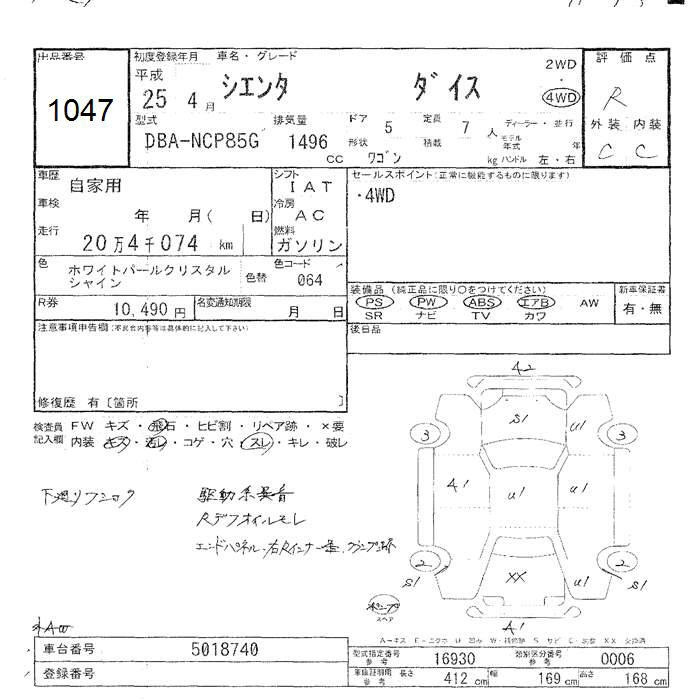 出品番号
1047
初度登録年月 車名・グレード
平成
25 4月
シエンタ ダイス
2WD
・
4WD
評価点
R
外装 内装
C C
型式
DBA-NCP85G
排気量
1496
cc
ドア 5
定員 7 人
形状 ワゴン
積載 kg
ディーラー・並行
モデル年式 年
ハンドル 左・右
車歴
自家用
車検
年 月( 日)
走行
20万4千074 km
シフト
IAT
冷房
AC
燃料
ガソリン
セールスポイント(正常に機能するものに限ります)
・4WD
色
ホワイトパールクリスタル
シャイン
色替
色コード
064
装備品 (純正品に限り○をつけてください)
PS PW ABS エアB AW
SR ナビ TV カワ
新車保証書
有・無
R券
10,490円
名変通知期限
月 日
後日品
注意事項申告欄(不具合内容等は具体的に記入して下さい)
修復歴 有〔箇所 〕
検査員
記入欄
FW キズ・飛石・ヒビ割・リペア跡・×要
内装・キズ・汚レ・コゲ・穴・スレ・キレ・破レ
下廻りフショク
駆動系異音
Rデフオイルモレ
A2
S1
U1
3
3
A1
U1
U1
2
2
S1
XX
U1
S1
A1
スペア
車台番号 5018740
登録番号
型式指定番号
参考
16930
類別区分番号
参考
0006
車庫証明用
参考
長さ 412 cm
幅 169 cm
高さ 168 cm